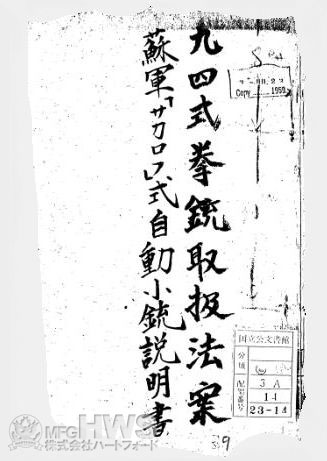 九四式拳銃取扱法案
蘇軍「サカロフ」式自動小銃説明書
Copy 1959
国立公文書館
分類
配架番号
3 A
14
23-14
39
HWS
MFG
株式会社ハートフォード